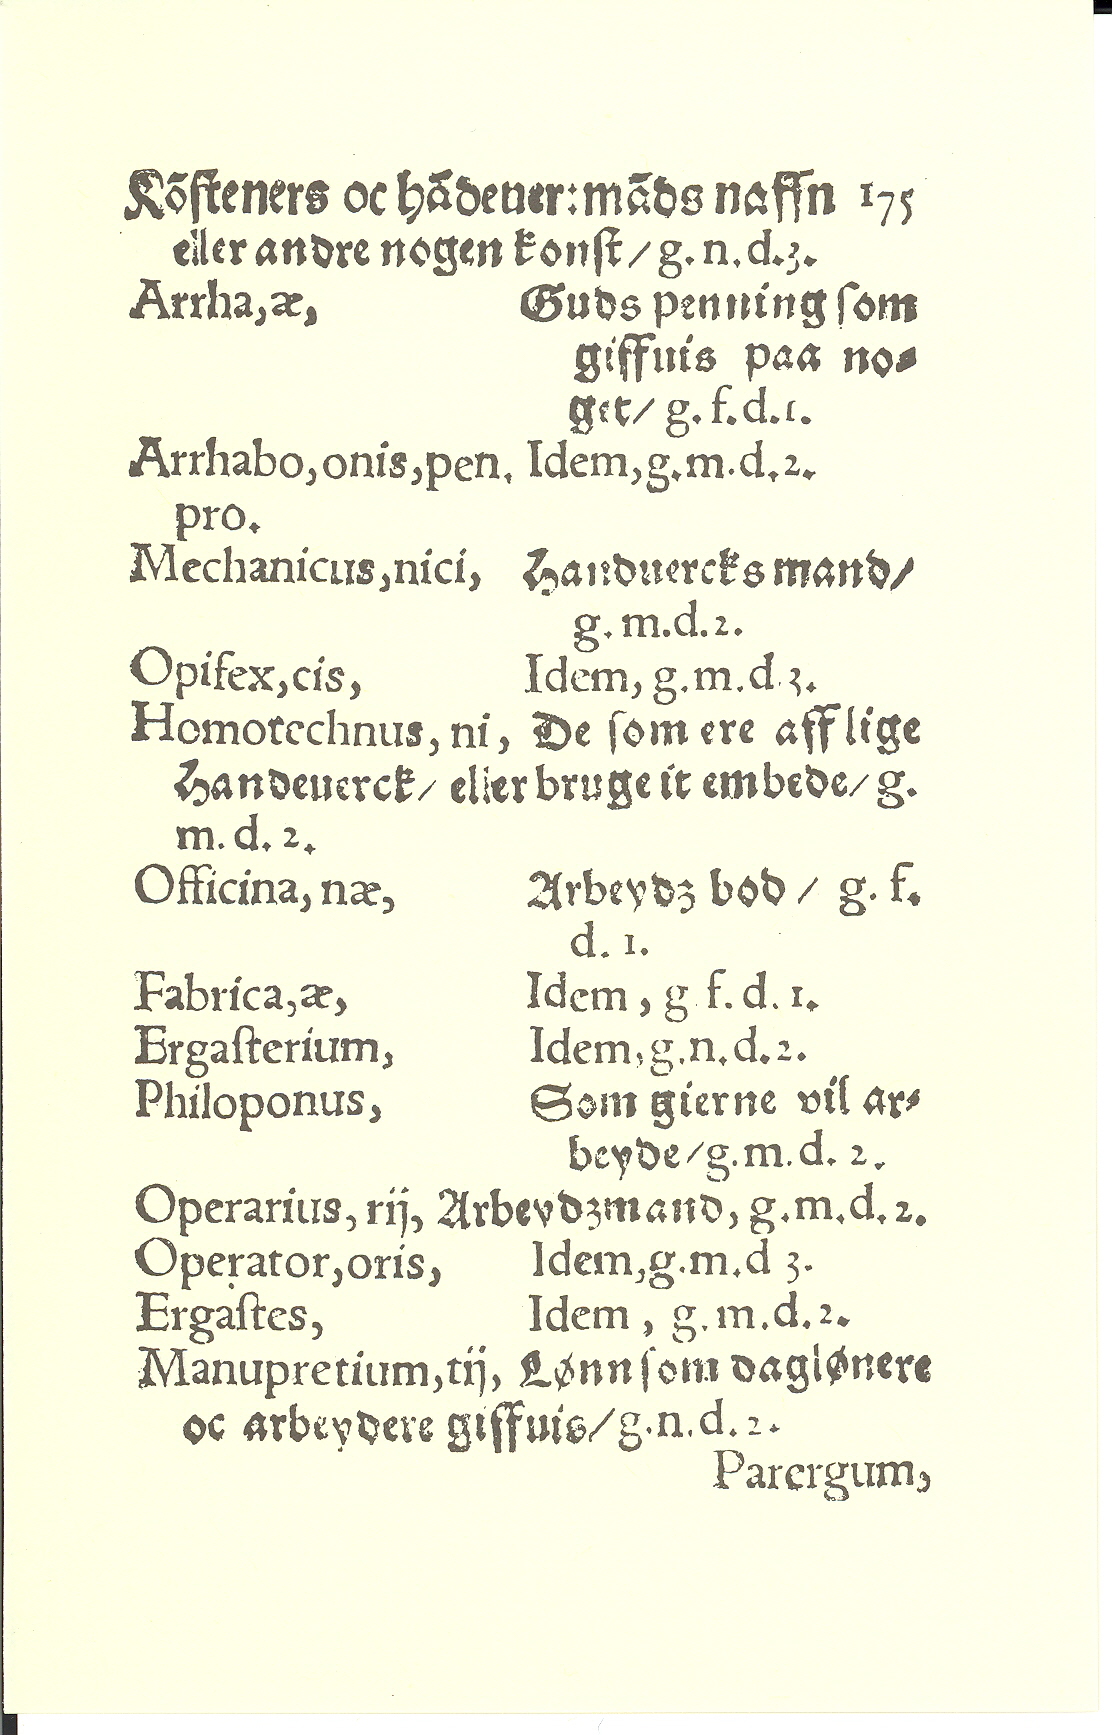 Kõsteners oc hãdeuer:mãds naffn 175
eller andre nogen konst/g.n.d.3.
Arrha,æ, Guds penning som
giffuis paa no-
get/ g.f.d.1.
Arrhabo,onis,pen. Idem,g.m.d.2.
pro.
Mechanicus,nici, Handuercks mand/
g.m.d.2.
Opifex,cis, Idem, g.m.d.3.
Homotechnus, ni, De som ere aff lige
Handeuerck/ eller bruge it embede/ g.
m.d.2.
Officina, næ, Arbeydz bod / g.f.
d. 1.
Fabrica,æ, Idem , g f.d.1.
Ergaſterium, Idem,g.n.d.2.
Philoponus, Som gierne vil ar-
beyde/g.m.d. 2.
Operarius, rij, Arbeydzmand, g.m.d.2.
Operator,oris, Idem,g.m.d 3.
Ergaſtes, Idem , g.m.d.2.
Manupretium,tij, Lønn som daglønere
oc arbeydere giffuis/g.n.d.2.
Parergum,